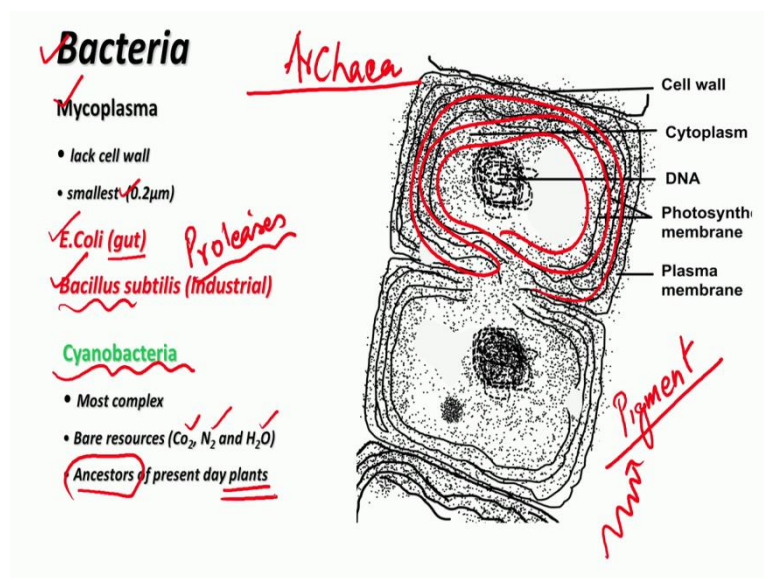 Bacteria
Archaea
Mycoplasma
• lack cell wall
• smallest (0.2µm)
E.Coli (gut)
Proleases
Bacillus subtilis (Industrial)
Cyanobacteria
• Most complex
• Bare resources (Co₂, N₂ and H₂O)
• Ancestors of present day plants
Cell wall
Cytoplasm
DNA
Photosynthe
membrane
Plasma
membrane
Pigment